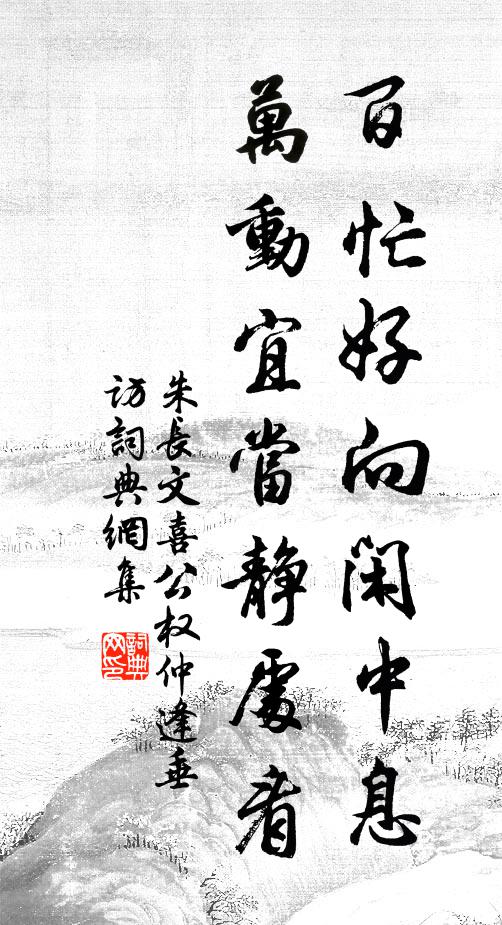 百忙好向閑中息
萬動宜當靜處看
朱長文喜公权仲逢垂
访詞典網集
詞典网印